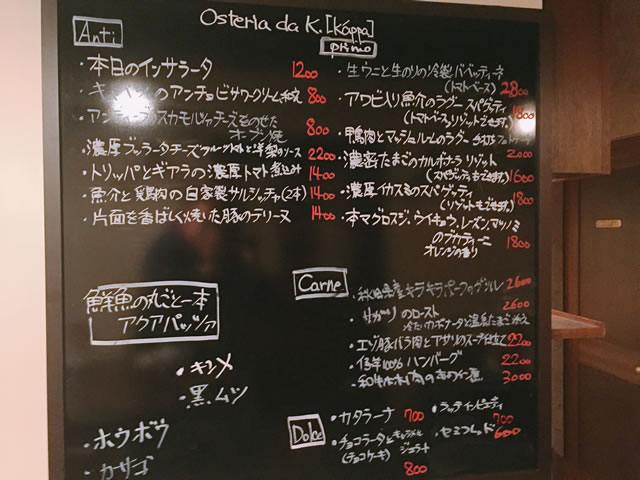 Osteria da K. [káppa]
Anti
・本日のインサラータ 1200
のアンチョビサワークリーム和え 800
スカモルツァチーズをのせた
オーブン焼 800
・濃厚ブッラータチーズ と洋梨のソース 2200
・トリッパとギアラの濃厚トマト煮込み 1400
・魚介と鶏肉の自家製サルシッチャ(2本) 1400
・片面を香ばしく焼いた豚のテリーヌ 1400
鮮魚の丸ごと一本
アクアパッツァ
・キンメ
・黒ムツ
・ホウボウ
・カサゴ
primo
・生ウニと生のりの冷製
(トマトベース) 2800
・アワビ入り魚介のラグー スパゲティ
(トマトベース、リゾットできます) 1800
・鴨肉とマッシュルームのラグー
2000
・濃密たまごのカルボナーラ リゾット
(スパゲッティもできます) 1600
・濃厚イカスミのスパゲッティ
(リゾットもできます) 1800
・本マグロスジ、ウイキョウ、レーズン、マツノミ
のブカティーニ
オレンジの香り 1800
Carne
キラキラビーフのグリル 2600
のロースト 2600
冷たいカポナータと温泉たまご添え
・エゾ豚バラ肉とアサリのスープ仕立て 2200
100% ハンバーグ 2200
3000
Dolce
・カタラーナ 700
・チョコラータとキャラメル
(チョコケーキ) ジェラート
800
700
・セミフレッド 600